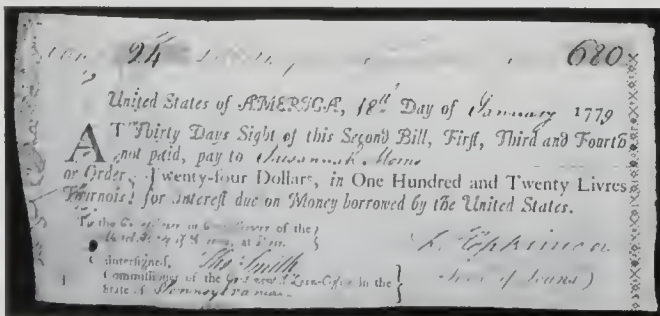 24 680
United States of AMERICA, 18th Day of January 1779
AT Thirty Days Sight of this Second Bill, First, Third and Fourth
not paid, pay to Susannah
or Order, Twenty-four Dollars, in One Hundred and Twenty Livres
Tournois, for Interest due on Money borrowed by the United States.
To the Commissioner or Commissioners of the
at Paris. F. Hopkinson
Countersigned, Tho Smith
Commissioner of the Continental Loan-Office in the Treas. of Loans
State of Pennsylvania